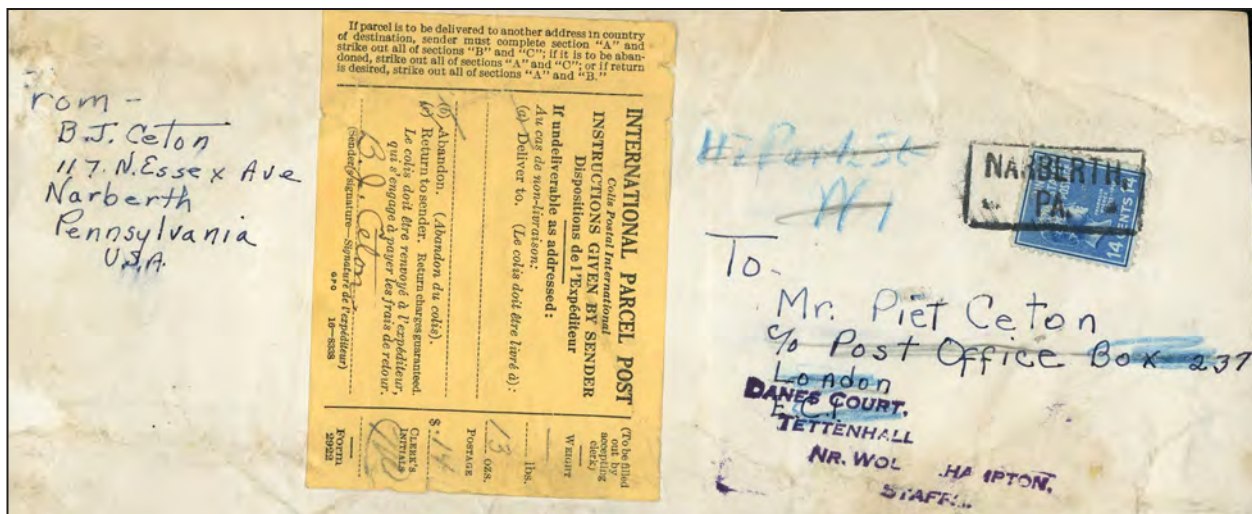 rom -
B.J. Ceton
117. N. Essex Ave
Narberth
Pennsylvania
U.S.A.
If parcel is to be delivered to another address in country
of destination, sender must complete section "A" and
strike out all of sections "B" and "C"; if it is to be aban-
doned, strike out all of sections "A" and "C"; or if return
is desired, strike out all of sections "A" and "B."
INTERNATIONAL PARCEL POST
Colis Postal International
INSTRUCTIONS GIVEN BY SENDER
Dispositions de l'Expéditeur
If undeliverable as addressed:
Au cas de non-livraison:
(a) Deliver to. (Le colis doit être livré à):
(b) Abandon. (Abandon du colis).
(c) Return to sender. Return charges guaranteed.
Le colis doit être renvoyé à l'expéditeur,
qui s'engage à payer les frais de retour.
B.J. Ceton
(Sender's signature—Signature de l'expéditeur)
GPO 16—8338
(To be filled
out by
accepting
clerk)
WEIGHT
lbs.
13 ozs.
POSTAGE
$ .14
CLERK'S
INITIALS
Form
2922
117 Park St
W1
NARBERTH,
PA.
14 CENTS
To-
Mr. Piet Ceton
c/o Post Office Box 237
London
E.C.1
DANES COURT,
TETTENHALL
NR. WOL HAMPTON,
STAFFS.